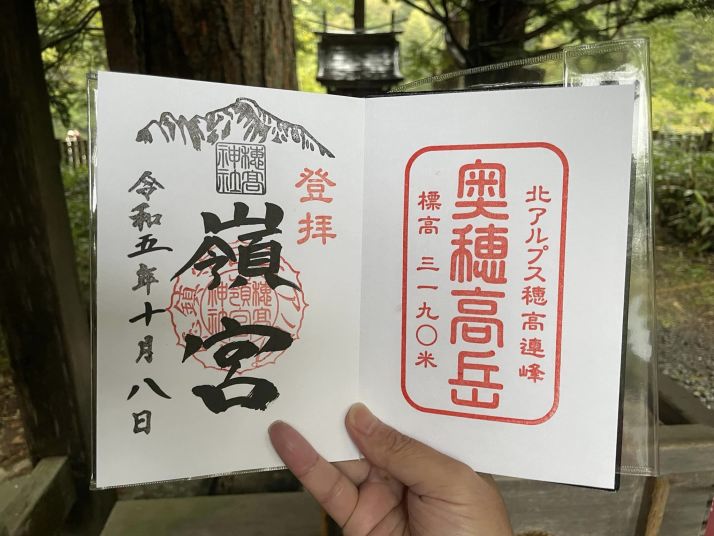 北アルプス穂高連峰
奥穂高岳
標高 三一九〇米
登拝
穂高
神社
嶺宮
令和五年十月八日